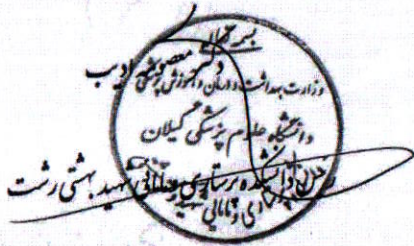 بسمه تعالی
دکتر معصومه ادیب
وزارت بهداشت و درمان و آموزش پزشکی
دانشگاه علوم پزشکی گیلان
دانشکده پرستاری و مامایی شهید بهشتی رشت